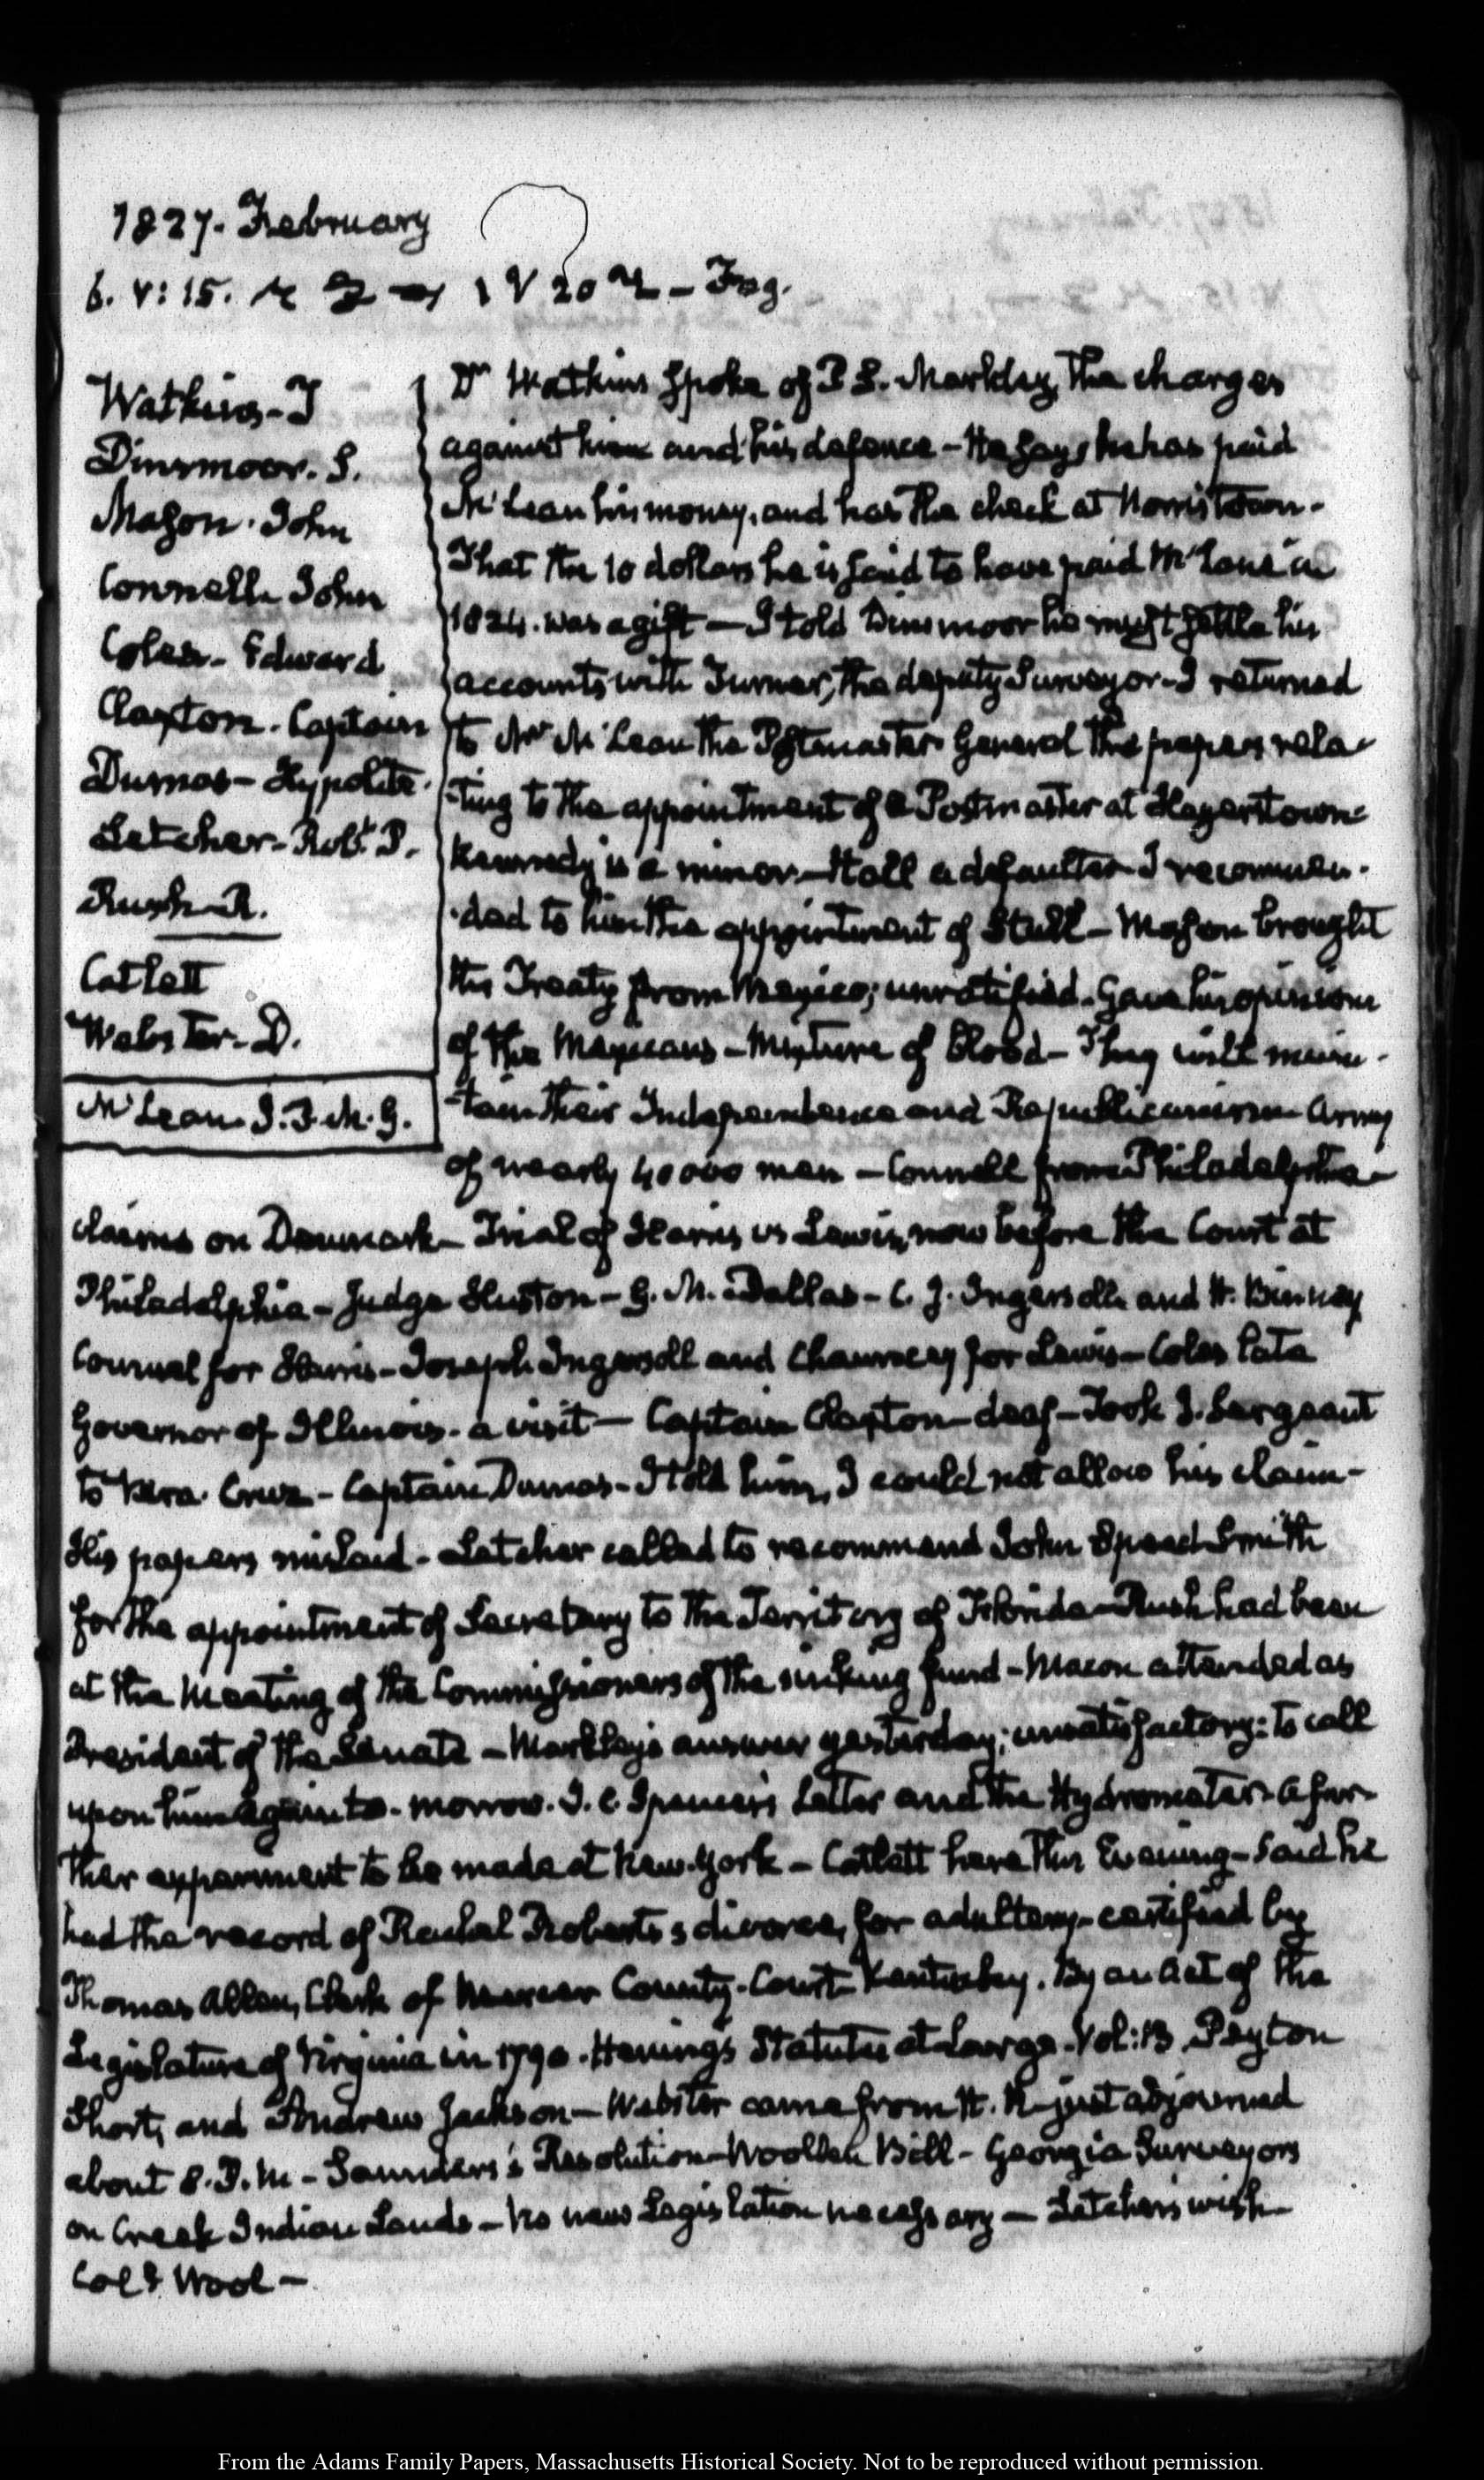 1827. February
6. V: 15.
20 - Fog.
Watkins - T
Dinsmoor. S.
Mason. John
Connell. John
Coles. Edward
Claxton. Captain
Dumas - Hypolite.
Letcher - Robt. P.
Rush. R.
Catlett
Webster - D.
McLean. J. P. M. G.
Dr Watkins spoke of P S. Markley, the charges
against him and his defence - He says he has paid
McLean his money, and has the check at Norristown.
That the 10 dollars he is said to have paid McLane in
1824. was a gift — I told Dinsmoor he must settle his
accounts with Turner, the deputy Surveyor - I returned
to Mr McLean the Postmaster General the papers rela-
ting to the appointment of a Postmaster at Hagerstown -
Kennedy is a minor - Hall a defaulter I recommen-
ded to him the appointment of Stull - Mason brought
the Treaty from Mexico; unratified. Gave his opinions
of the Mexicans - Mixture of blood - They will main-
tain their Independence and Republicanism Army
of nearly 40000 men - Connell from Philadelphia -
claims on Denmark - Trial of Harris vs Lewis, now before the Court at
Philadelphia - Judge Huston - G. M. Dallas - C. J. Ingersoll and H. Binney
Counsel for Harris - Joseph Ingersoll and Chauncey for Lewis - Coles late
Governor of Illinois. a visit - Captain Claxton - deaf - Took J. Sergeant
to Vera. Cruz - Captain Dumas - I told him, I could not allow his claim -
His papers mislaid - Letcher called to recommend John Speed Smith
for the appointment of Secretary to the Territory of Florida - Rush had been
at the Meeting of the Commissioners of the sinking fund - Macon attended as
President of the Senate - Markley's answer yesterday; unsatisfactory: to call
upon him again to-morrow. J. C. Spencer's Letter and the Hydrometer - A fur-
ther experiment to be made at New-York - Catlett here this Evening - said he
had the record of Rachel Robards's divorce, for adultery - certified by
Thomas Allen, Clerk of Mercer County-Court Kentucky. By an Act of the
Legislature of Virginia in 1790. Henings Statutes at Large. Vol: 13 Peyton
Short, and Andrew Jackson - Webster came from H. R just adjourned
about 8. P. M - Saunders's Resolution - Woollen Bill - Georgia Surveyors
on Creek Indian Lands - No new Legislation necessary - Letcher's wish -
Coll Wool -